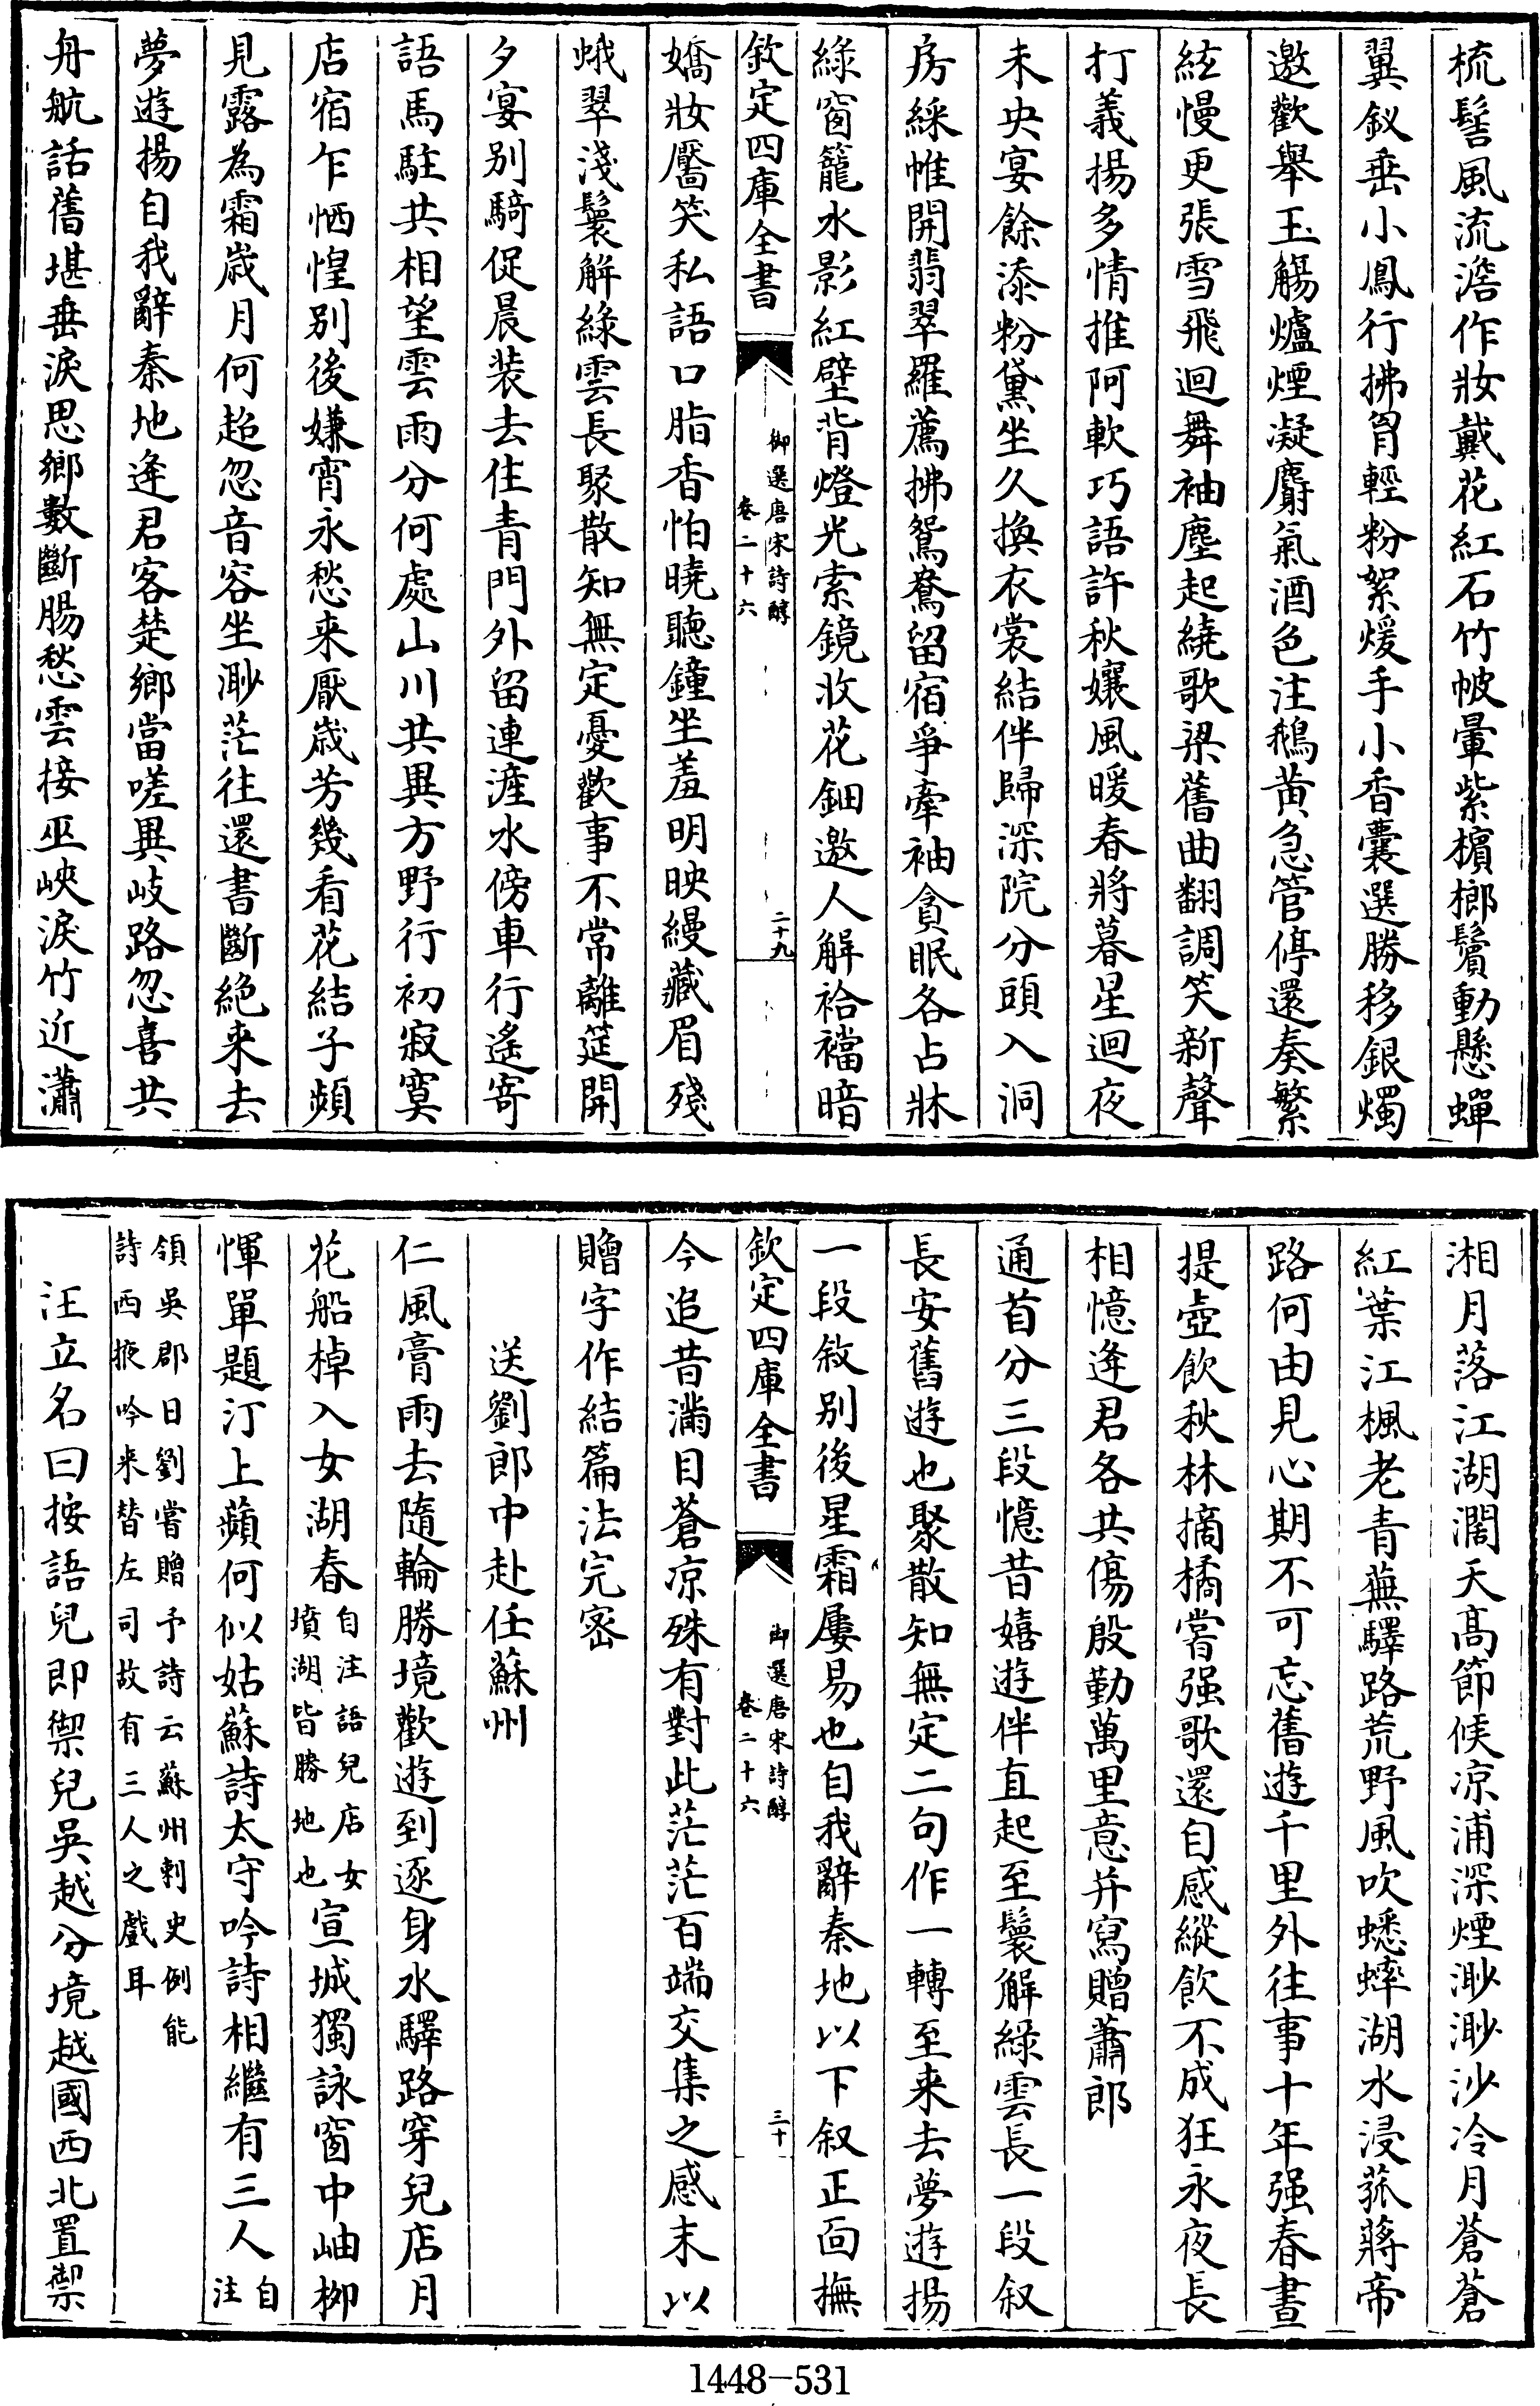 梳髻風流澹作妝戴花紅石竹帔暈紫檳榔鬢動懸蟬
翼釵垂小鳳行拂胷輕粉絮煖手小香囊選勝移銀燭
邀歡舉玉觴爐煙凝麝氣酒色注鵝黄急管停還奏繁
絃慢更張雪飛迴舞袖塵起繞歌梁舊曲翻調笑新聲
打義揚多情推阿軟巧語許秋孃風暖春將暮星迴夜
未央宴餘添粉黛坐久換衣裳結伴歸深院分頭入洞
房綵帷開翡翠羅薦拂鴛鴦留宿爭牽袖貪眠各占牀
綠窗籠水影紅壁背燈光索鏡收花鈿邀人解袷襠暗
欽定四庫全書
御選唐宋詩醇
卷二十六
二十九
嬌妝靨笑私語口脂香怕曉聽鐘坐羞明映縵藏眉殘
蛾翠淺鬟解綠雲長聚散知無定憂歡事不常離筵開
夕宴别騎促晨装去住青門外留連滻水傍車行遙寄
語馬駐共相望雲雨分何處山川共異方野行初寂寞
店宿乍恓惶别後嫌宵永愁来厭歲芳幾看花結子頻
見露為霜歲月何超忽音容坐渺茫往還書斷絶来去
夢遊揚自我辭秦地逢君客楚鄉當嗟異岐路忽喜共
舟航話舊堪垂淚思鄉數斷腸愁雲接巫峽淚竹近瀟
湘月落江湖濶天髙節候凉浦深煙渺渺沙冷月蒼蒼
紅葉江楓老青蕪驛路荒野風吹蟋蟀湖水浸菰蔣帝
路何由見心期不可忘舊遊千里外往事十年强春晝
提壺飲秋林摘橘嘗强歌還自感縱飲不成狂永夜長
相憶逢君各共傷殷勤萬里意并寫贈蕭郎
通首分三段憶昔嬉遊伴直起至鬟解綠雲長一段叙
長安舊遊也聚散知無定二句作一轉至来去夢遊揚
一段敘别後星霜屢易也自我辭秦地以下叙正面撫
欽定四庫全書
御選唐宋詩醇
卷二十六
三十
今追昔滿目蒼凉殊有對此茫茫百端交集之感末以
贈字作結篇法完密
送劉郎中赴任蘇州
仁風膏雨去隨輪勝境歡遊到逐身水驛路穿兒店月
花船棹入女湖春自注語兒店女墳湖皆勝地也宣城獨詠窗中岫柳
惲單題汀上蘋何似姑蘇詩太守吟詩相繼有三人自注
領吳郡日劉嘗贈予詩云蘇州刺史例能
詩西掖吟来替左司故有三人之戲耳
汪立名曰按語兒即禦兒吳越分境越國西北置禦
1448-531